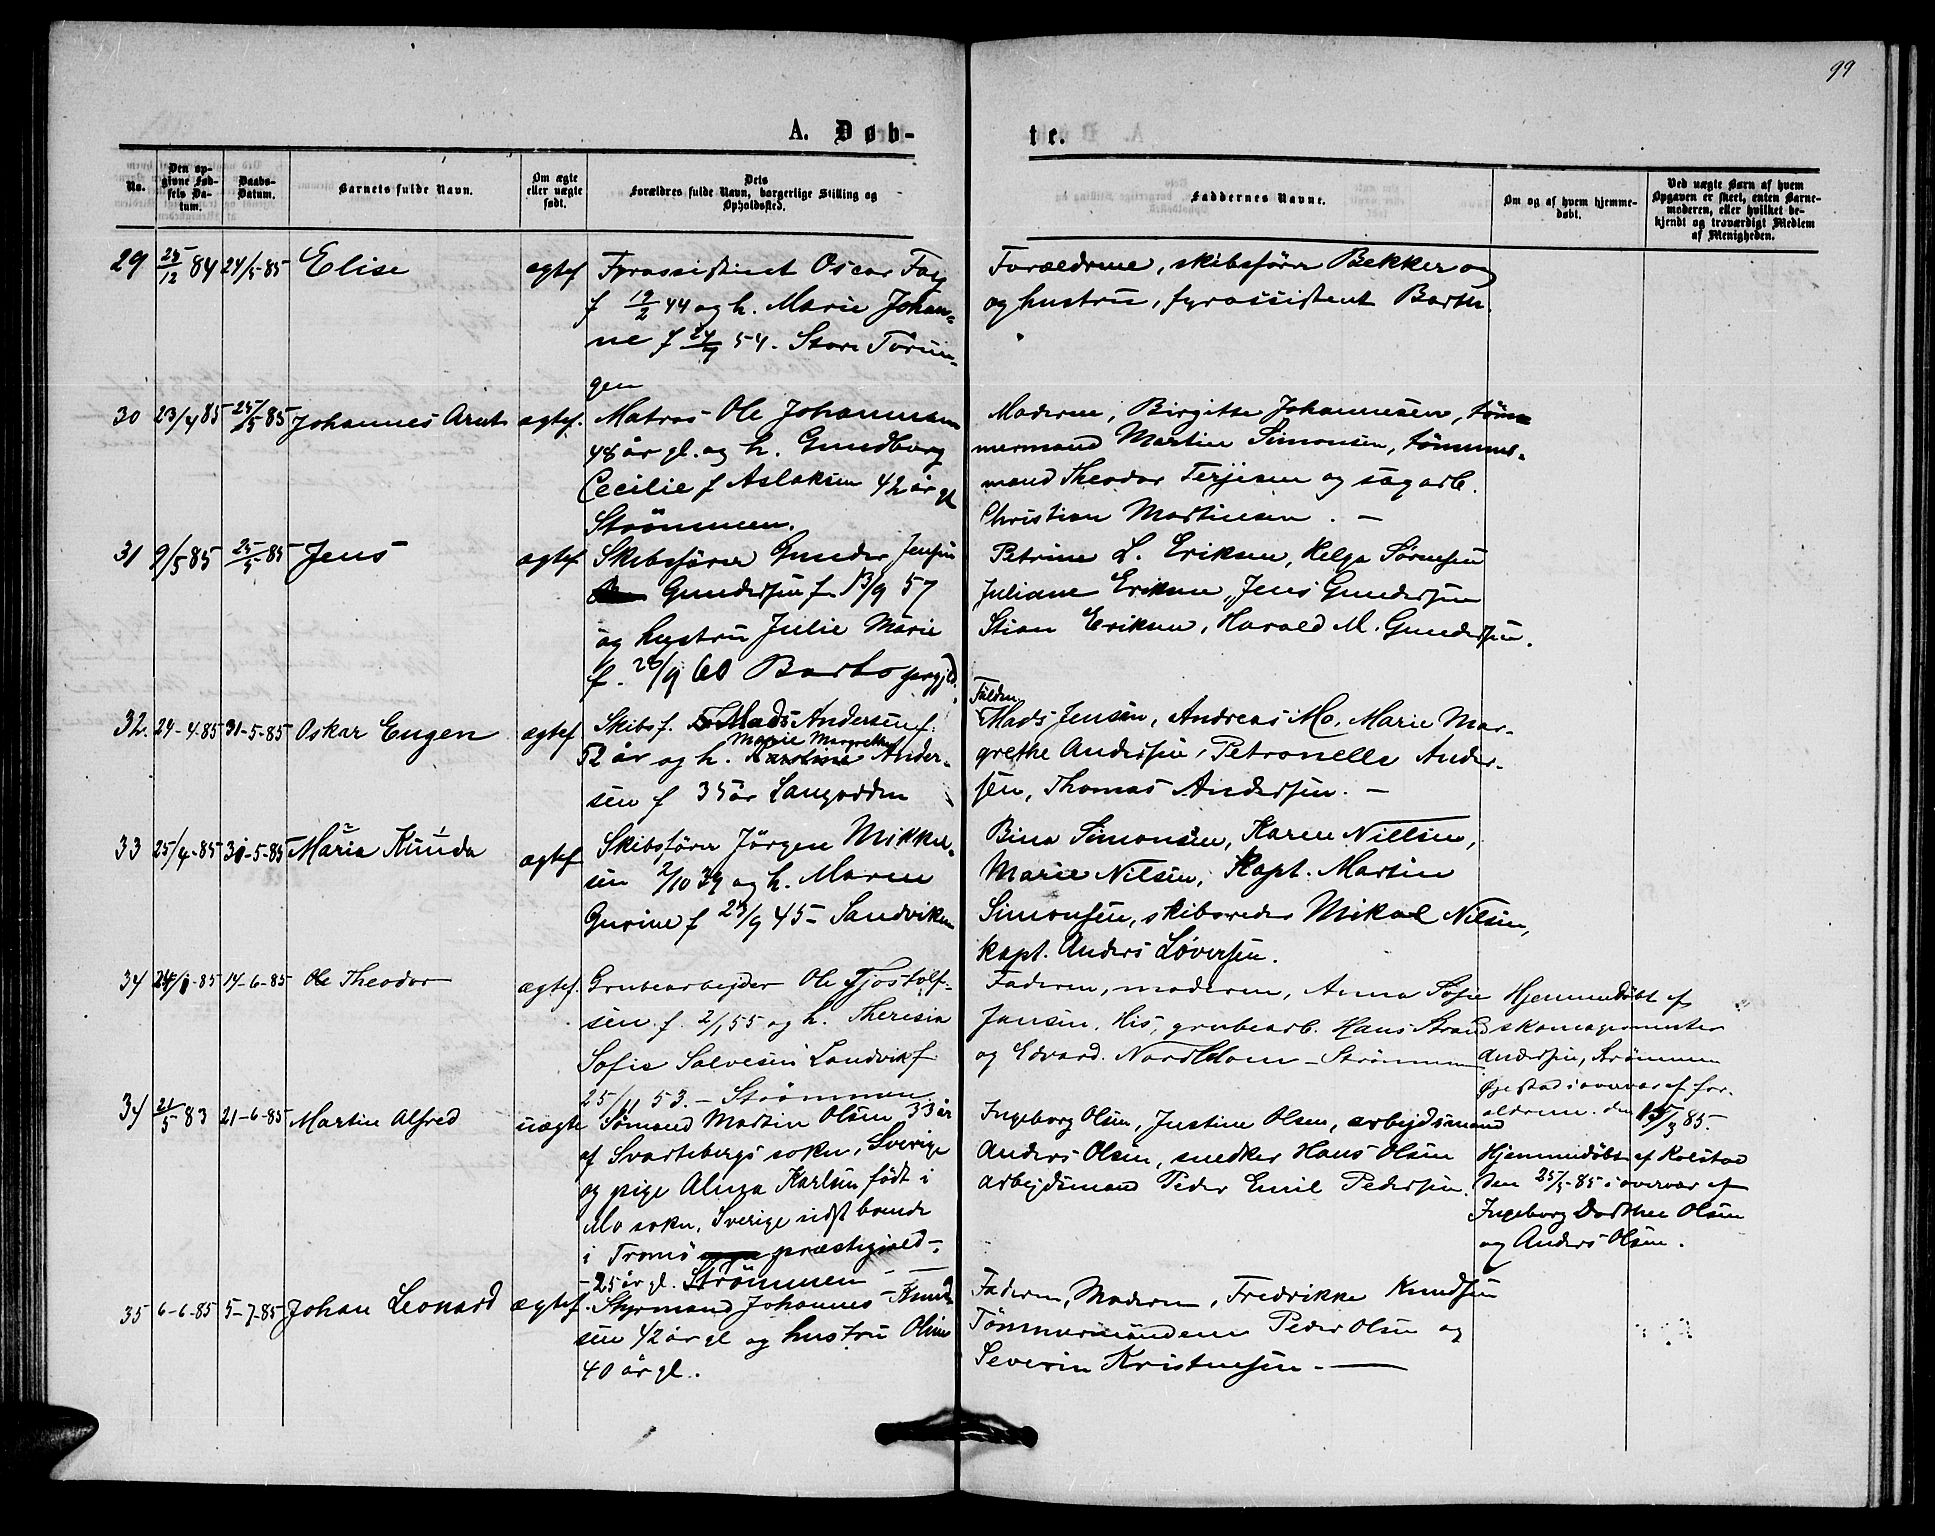 99
A. Døb-
te.
No.
Den op-
givne Fød-
sels Da-
tum.
Daabs-
Datum.
Barnets fulde Navn.
Om ægte
eller uægte
født.
Dets
Forældres fulde Navn, borgerlige Stilling og
Opholdssted.
Faddernes Navne.
Om og af hvem hjemme-
døbt.
Ved uægte Børn af hvem
Opgaven er skeet, enten Barne-
moderen, eller hvilket be-
kjendt og troværdigt Medlem
af Menigheden.
29 /12 84 24/5 85 Elise ægtef Fyrassistent Oscar
f 19/2 44 og h. Marie Johan-
ne f 54. Store Torun-
gen
Forældrene, skibsfører Bekker og
og hustru, fyrassistent Barth.
30 23/4 85 25/5 85 Johannes Arnt ægtef. Matros Ole Johannesen
48 år gl. og h. Gundborg
Cecilie f Aslaksen 42 år gl
Strömmen.
Moderen, Birgitte Johannesen, töm-
mermand Martin Simonsen, tömmer-
mand Theodor Terjesen og sagarb.
Christian Martinsen. —
31 9/5 85 25/5 85 Jens ægtef Skibsfører Gunder Jensen
Gundersen f 13/9 57
og hustru Julie Marie
f. 26/9 60 Barbo prgjd.
Petrine L. Eriksen, Helga Sörensen
Juliane Eriksen, Jens Gundersen
Stian Eriksen, Harald M. Gundersen.
32. 24-4-85 31-5-85 Oskar Eugen ægtef Skibsf. Mads Andersen f.
Marie Margrethe
52 år og h. Ander-
sen f 35 år Langodden
Mads Jensen, Andreas Mo. Marie Mar-
grethe Andersen, Petronelle Ander-
sen, Thomas Andersen. —
33 25/4-85 31-5-85 Maria Kunda ægtef Skibsfører Jörgen Mikkel-
sen 2/10 39 og h. Maren
Gurine f 23/9 45 - Sandviken
Bina Simonsen, Karen Nillsen,
Marie Nilsen, Kapt. Martin
Simonsen, skibsreder Mikal Nilsen,
kapt. Anders Löversen.
34 85 14-6-85 Ole Theodor ægtef. Grubearbejder Ole Fjostolf-
sen f. 2/1 55 og h. Theresia
Sofie Salvesen Landvik f.
25/11 53. - Strömmen.
Faderen, moderen, Anna Sofie
Jansen, His, grubearb. Hans Strand
og Edvard Nordblom - Strömmen
Hjemmedöbt af
skomagermester
Andersen, Strömmen
Øjestad i overvær af for-
ældrene. den 85.
34 21/5 83 21-6-85 Martin Alfred uægte Sömand Martin Olsen 33 år
af Svarteborgs sokn, Sverige
og pige Alma Karlsen födt i
Mo sokn, Sverige sidst boende
i Tromö præstegjeld -
- 25 år gl. Strömmen -
Ingeborg Olsen, Justine Olsen, arbejdsmand
Anders Olsen, snedker Hans Olsen
arbejdsmand Peder Emil Pedersen.
Hjemmedöbt af Kolstad
den 85 i overvær af
Ingeborg Dorthee Olsen
og Anders Olsen.
35 6-6-85 5-7-85 Johan Leonard ægtef. Styrmand Johannes Knud-
sen 42 år gl og hustru Oline
40 år gl.
Faderen, Moderen, Fredrikke Knudsen
Tömmermændene Peder Olsen og
Severin Kristensen. —